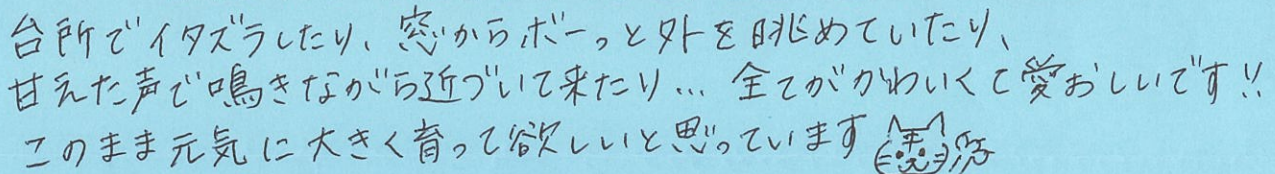 台所でイタズラしたり、窓からボーっと外を眺めていたり、
甘えた声で鳴きながら近づいて来たり… 全てがかわいくて愛おしいです!!
このまま元気に大きく育って欲しいと思っています